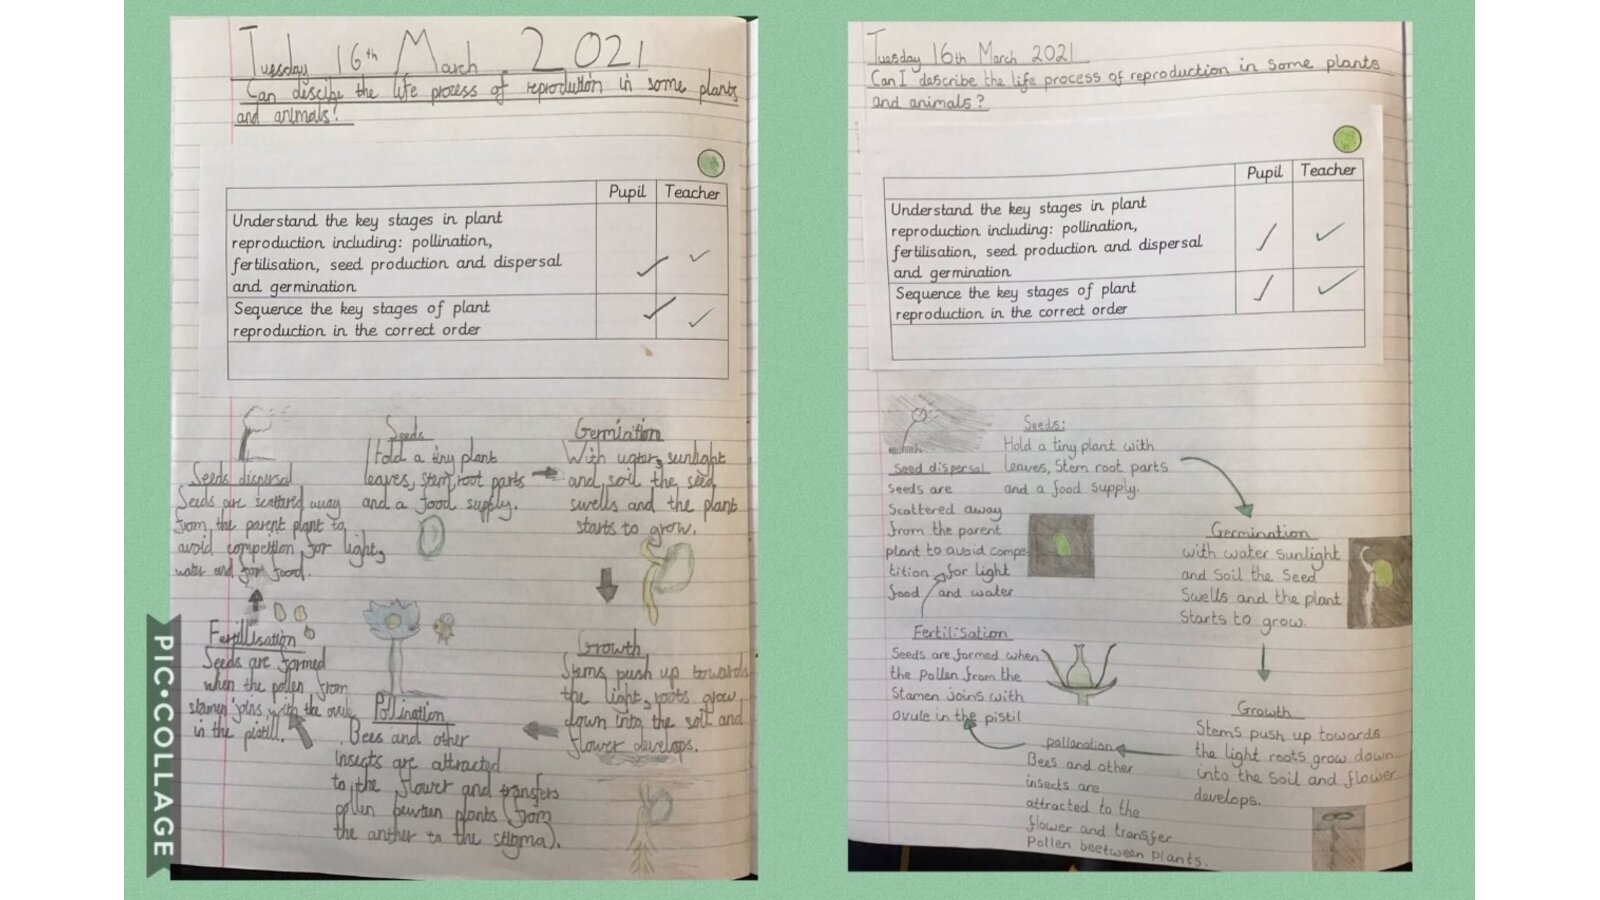 Tuesday 16th March 2021
Can discibe the life process of reproduction in some plants
and animals?
Pupil Teacher
Understand the key stages in plant
reproduction including: pollination,
fertilisation, seed production and dispersal
and germination
Sequence the key stages of plant
reproduction in the correct order
Seeds dispersal
Seeds are scattered away
from the parent plant to
avoid competition for light,
water and for food.
Seeds
Hold a tiny plant
leaves, stem, root parts
and a food supply.
Germination
With water, sunlight
and soil the seed
swells and the plant
starts to grow.
Growth
Stems push up towards
the light, roots grow
down into the soil and
flower develops.
Pollination
Bees and other
insects are attracted
to the flower and transfers
pollen bewteen plants (from
the anther to the stigma).
Fertilisation
Seeds are formed
when the pollen from
stamen joins with the ovule
in the pistill.
PIC•COLLAGE
Tuesday 16th March 2021
Can I describe the life process of reproduction in some plants
and animals?
Pupil Teacher
Understand the key stages in plant
reproduction including: pollination,
fertilisation, seed production and dispersal
and germination
Sequence the key stages of plant
reproduction in the correct order
Seed dispersal
Seeds are
Scattered away
from the parent
plant to avoid compe
tition for light
food and water
Seeds:
Hold a tiny plant with
leaves, Stem root parts
and a food supply.
Germination
with water sunlight
and Soil the Seed
Swells and the plant
Starts to grow.
Growth
Stems push up towards
the light roots grow down
into the Soil and flower
develops.
pollanation
Bees and other
insects are
attracted to the
flower and transfer
Pollen beetween Plants.
Fertilisation
Seeds are formed when
the Pollen from the
Stamen joins with
ovule in the pistil